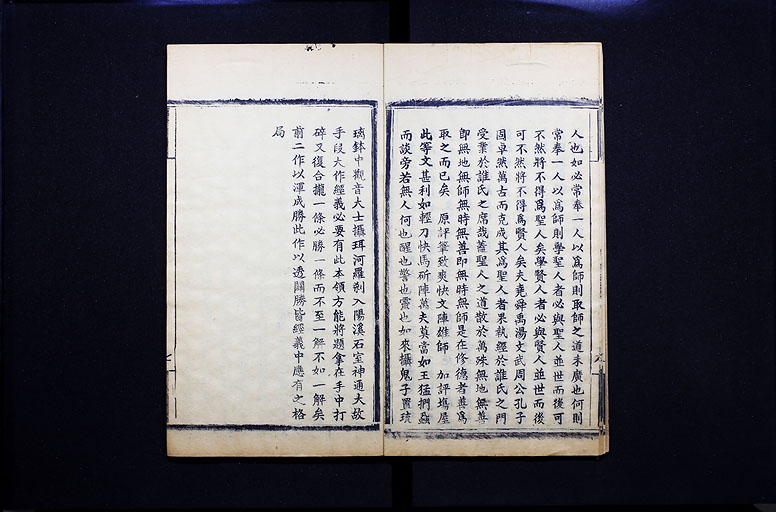 人也如必常奉一人以爲師則取師之道未廣也何則
常奉一人以爲師則學聖人者必與聖人並世而後可
不然將不得爲聖人矣學賢人者必與賢人並世而後
可不然將不得爲賢人矣夫堯舜禹湯文武周公孔子
固卓然萬古而克成其爲聖人者果執經於誰氏之門
受業於誰氏之席哉蓋聖人之道散於萬殊無地無善
卽無地無師無時無善卽無時無師是在修德者善爲
取之而已矣 原評筆致爽快文陣雄師 加評塲屋
此等文甚利如輕刀快馬斫陣萬夫莫當如王猛捫蝨
而談旁若無人何也醒也警也震也如來攝鬼子置琉
璃鉢中觀音大士攝珥河羅刹入陽溪石室神通大故
手段大作經義必要有此本領方能將題拿在手中打
碎又復合攏一條必勝一條而不至一解不如一解矣
前二作以渾成勝此作以透闢勝皆經義中應有之格
局